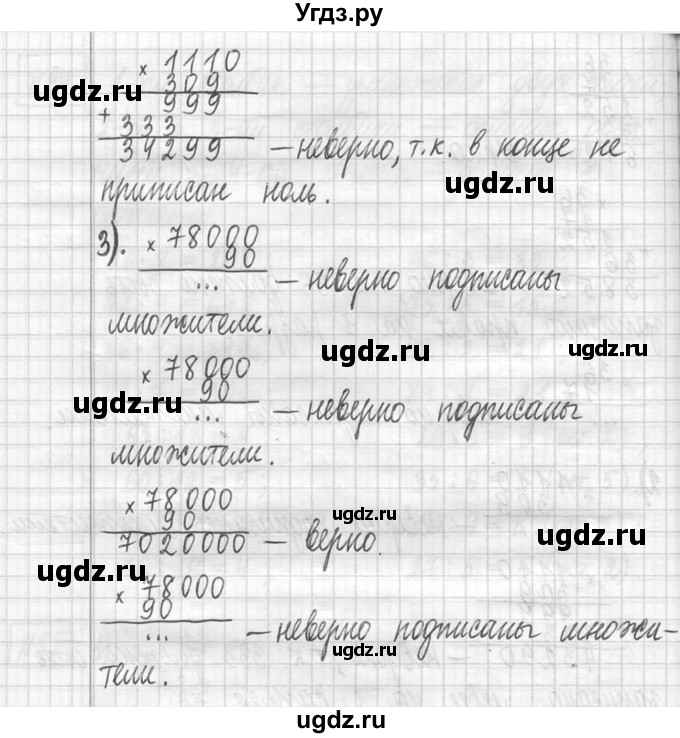 Угдз.ру
× 1110
309
ugdz.ru
999
ugdz.ru
+ 333
34299 — неверно, т.к. в конце не
приписан ноль. ugdz.ru
3). × 78000
90
... — неверно подписаны
множители. ugdz.ru ugdz.ru
× 78000
90
ugdz.ru ... — неверно подписаны
множители.
× 78000
90 ugdz.ru
7020000 — верно. ugdz.ru
ugdz.ru
× 78000
90
... — неверно подписаны множи-
ugdz.ru
тели.
ugdz.ru